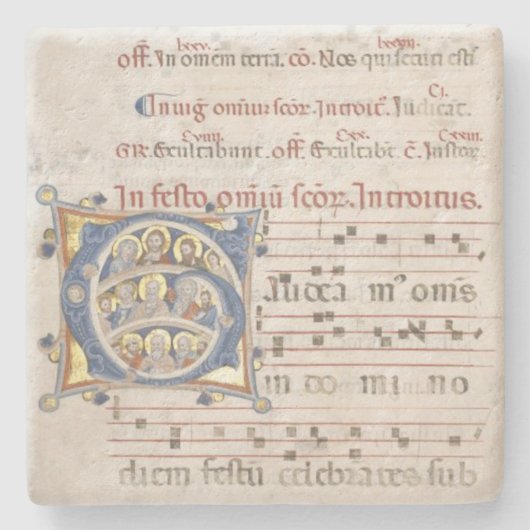 lxxv. lxxxvii.
off̃. In om̃em terrã. cõ. Nos qui secuti esti
CJ.
In uig̃ om̃iuʒ scõʒ. Introit̃. Iudicãt.
Cviii. Cxx. Cxxiii.
GR. Exultabunt. off̃. Exultabt̃. c̃. Iustoʒ
In festo om̃iũ scõʒ. Introitus.
Gaudeã mꝰ om̃s
in do mi no
diem festũ celebrãtes sub